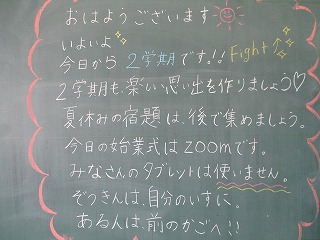 おはようございます
いよいよ
今日から2学期です。!! Fight↑
2学期も、楽しい思い出を作りましょう♡
夏休みの宿題は、後で集めましょう。
今日の始業式はzoomです。
みなさんのタブレットは使いません。
ぞうきんは、自分のいすに。
ある人は、前のかごへ!!